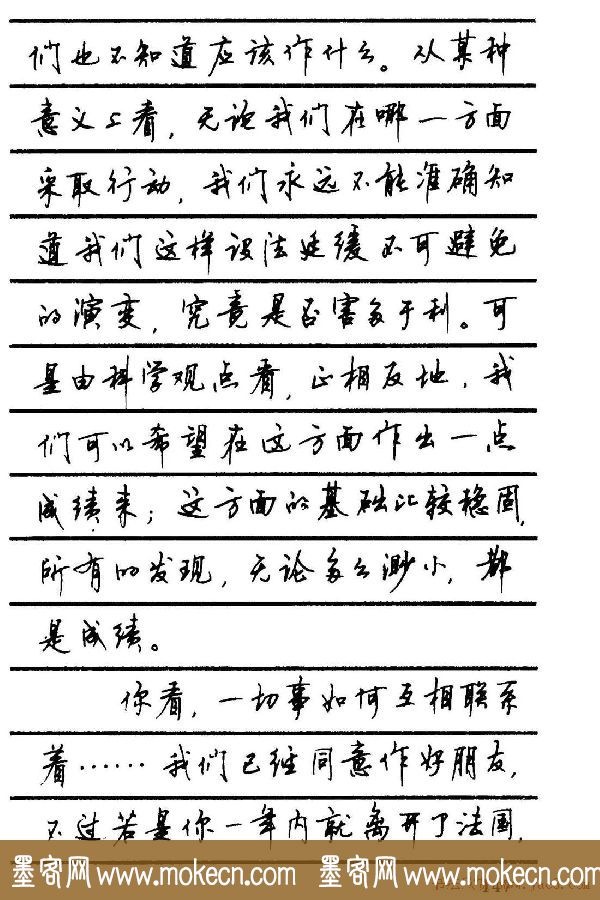 们也不知道应该作什么。从某种
意义上看，无论我们在哪一方面
采取行动，我们永远不能准确知
道我们这样设法延缓不可避免
的演变，究竟是否害多于利。可
是由科学观点看，正相反地，我
们可以希望在这方面作出一点
成绩来；这方面的基础比较稳固，
所有的发现，无论多么渺小，都
是成绩。
你看，一切事如何互相联系
着……我们已经同意作好朋友，
不过若是你一年内就离开了法国，
墨客网 www.mokecn.com 墨客网 www.mokecn.com